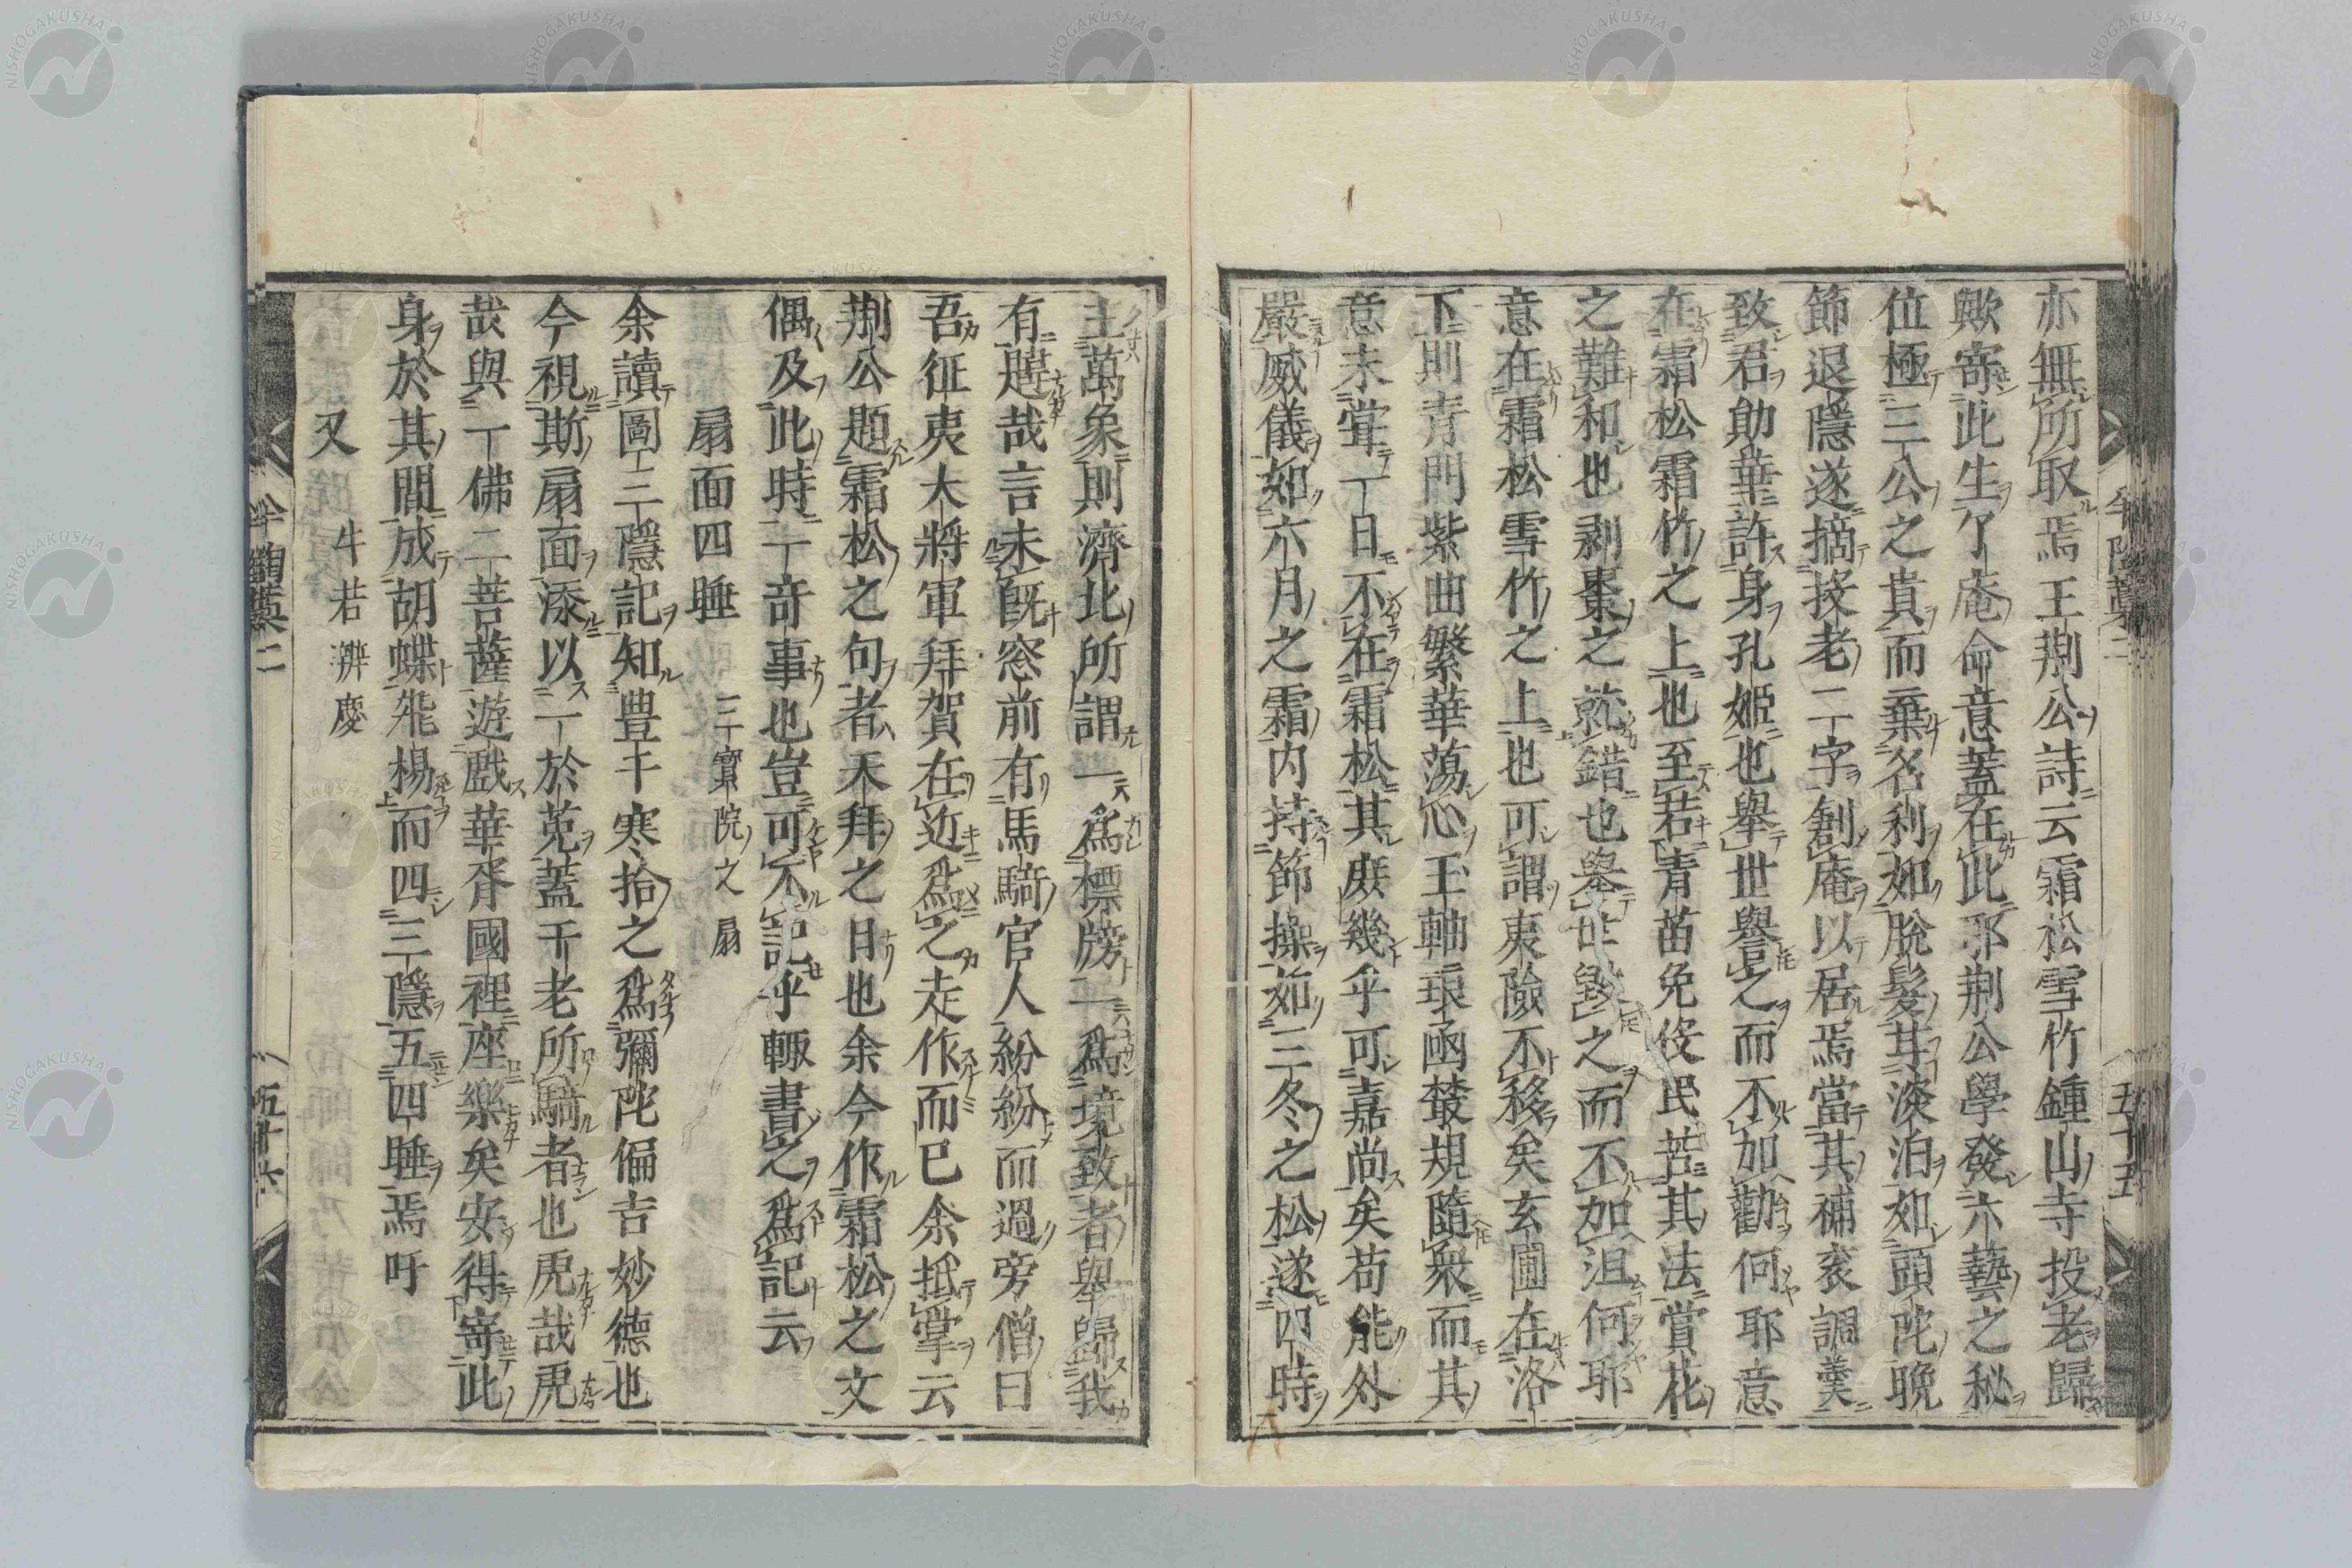 亦無所取焉王荆公詩云霜松雪竹鍾山寺投老歸
歟寄此生了庵命意蓋在此邪荆公學發六藝之秘
位極三公之貴而棄名利如脫髮其淡泊如頭陀晩
節退隱遂摘投老二字創庵以居焉當其補衮調羹
致君勛華許身孔姬也舉世譽之而不加勸何耶意
在霜松霜竹之上也至若青苗免役民苦其法賞花
之難和也剥棗之就錯也舉世毀之而不加沮何耶
意在霜松雪竹之上也可謂夷險不移矣玄圃在洛
下則青門紫曲繁華蕩心玉軸琅函叢規隨衆而其
意未甞一日不在霜松其庶幾乎可嘉尚矣苟能外
嚴威儀如六月之霜内持節操如三冬之松遂四時
主萬象則濟北所謂一爲標牓一爲境致者舉歸我
有韙哉言未既窓前有馬騎官人紛紛而過旁僧曰
吾征夷大將軍拜賀在近爲之走作而已余抵掌云
荆公題霜松之句者天拜之日也余今作霜松之文
偶及此時一奇事也豈可不記乎輙書之爲記云
扇面四睡 三寶院之扇
余讀圖三隱記知豊干寒拾之爲彌陀偏吉妙德也
今視斯扇面添以一於菟蓋干老所騎者也虎哉虎
哉與一佛二菩薩遊戯華胥國裡座樂矣安得寄此
身於其間成胡蝶飛揚而四三隱五四睡焉吁
又 牛若辨慶
五十五
五十六